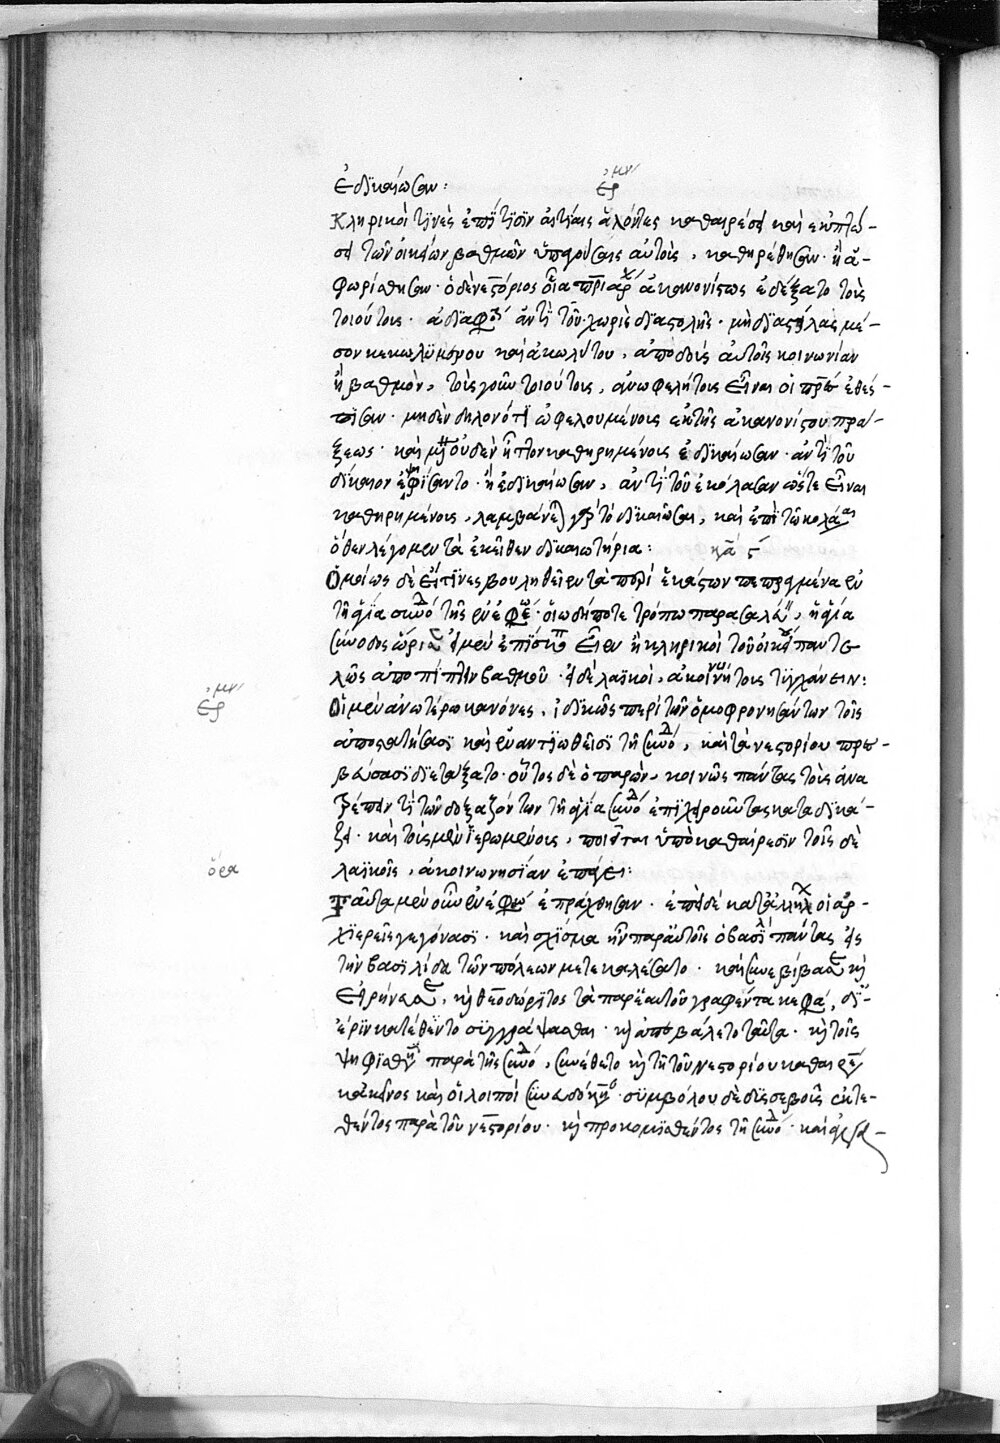 ἐδικαίωσαν:
ἑρμην
Κληρικοὶ τινὲς ἐπί τισιν αἰτίαις ἁλόντες καθαιρέσει καὶ ἐκπτώ-
σει τῶν οἰκείων βαθμῶν ὑπαγούσαις αὐτοὺς, καθηρέθησαν· ἢ ἀ-
φωρίσθησαν· ὁ δὲ νεστόριος ἀκανονίστως ἐδέξατο τοὺς
τοιούτους· ἀντὶ τοῦ χωρὶς διαστολῆς· μὴ διαστείλας μέ-
σον κεκωλυμένου καὶ ἀκωλύτου, ἀποδοὺς αὐτοῖς κοινωνίαν
ἢ βαθμὸν, τοὺς γοῦν τοιούτους, ἀνωφελήτους εἶναι οἱ πρες ἐθέσ-
πισαν· μηδὲν δηλονότι ὠφελουμένους ἐκ τῆς ἀκανονίστου πρά-
ξεως· καὶ μένειν οὐδὲν ἧττον καθηρημένους ἐδικαίωσαν· ἀντὶ τοῦ
δίκαιον ἐψηφίσαντο· ἢ ἐδικαίωσαν, ἀντὶ τοῦ ἐκόλασαν ὥστε εἶναι
καθηρημένους, λαμβάνεται γὰρ τὸ δικαιῶσαι, καὶ ἐπὶ τῶ κολάσαι
ὅθεν λέγομεν τὰ ἐκεῖθεν δικαιωτήρια: κα ϛ
Ὁμοίως δὲ εἴ τινες βουληθεῖεν τὰ περὶ ἑκάστων πεπραγμένα ἐν
τῆ ἁγία συνόδ τῆς ἐν ἐφέσω· οἱωδήποτε τρόπω παρασαλεύειν, ἡ ἁγία
σύνοδος ὥρισεν εἰ μὲν ἐπίσκοποι εἶεν ἢ κληρικοὶ τοῦ οἰκείου παντε
λῶς ἀποπίπτειν βαθμοῦ· εἰ δὲ λαϊκοὶ, ἀκοινωνήτους τυγχάνειν:
ἑρμην
Οἱ μὲν ἀνωτέρω κανόνες, ἰδικῶς περὶ τῶν ὁμοφρονησάντων τοῖς
ἀποστατήσασι καὶ ἐναντιωθεῖσι τῆ συνόδ, καὶ τὰ νεστορίου πρεσ-
βεύσασι διετάξατο· οὗτος δὲ ὁ παρὼν, κοινῶς πάντας τοὺς ἀνα
τρέπειν τι τῶν δοξαζόντων τῆ ἁγία συνόδ ἐπιχειροῦντας καταδικά-
ζει· καὶ τοὺς μὲν ἱερωμένους, ποιεῖται ὑπὸ καθαίρεσιν τοῖς δὲ
ὅρα
λαϊκοῖς, ἀκοινωνησίαν ἐπάγει:
Ταῦτα μὲν οὖν ἐν ἐφέσω ἐπράχθησαν· ἐπεὶ δὲ κατ᾽ ἀλλήλων οἱ ἀρ-
χιερεῖς γεγόνασι· καὶ σχίσμα ἦν παρ᾽ αὐτοῖς ὁ βασιλεὺς πάντας εἰς
τὴν βασιλίδα τῶν πόλεων μετεκαλέσατο· καὶ συνεβίβασε κὴ
εἰρήνευσε, κὴ θεοδώρητος τὰ παρ᾽ ἑαυτοῦ γραφέντα κεφα, δι᾽
ἔριν κατέθεντο συγγράψασθαι· κὴ ἀπεβάλετο ταῦτα· κὴ τοῖς
ψηφισθεῖσι παρὰ τῆς συνόδ, συνέθετο κὴ τῆ τοῦ νεστορίου καθαιρέσει
κἀκεῖνος καὶ οἱ λοιποὶ· συμβόλου δὲ δυσσεβοῦς ἐκτε-
θέντος παρὰ τοῦ νεστορίου· κὴ προκομισθέντος τῆ συνόδ· καὶ